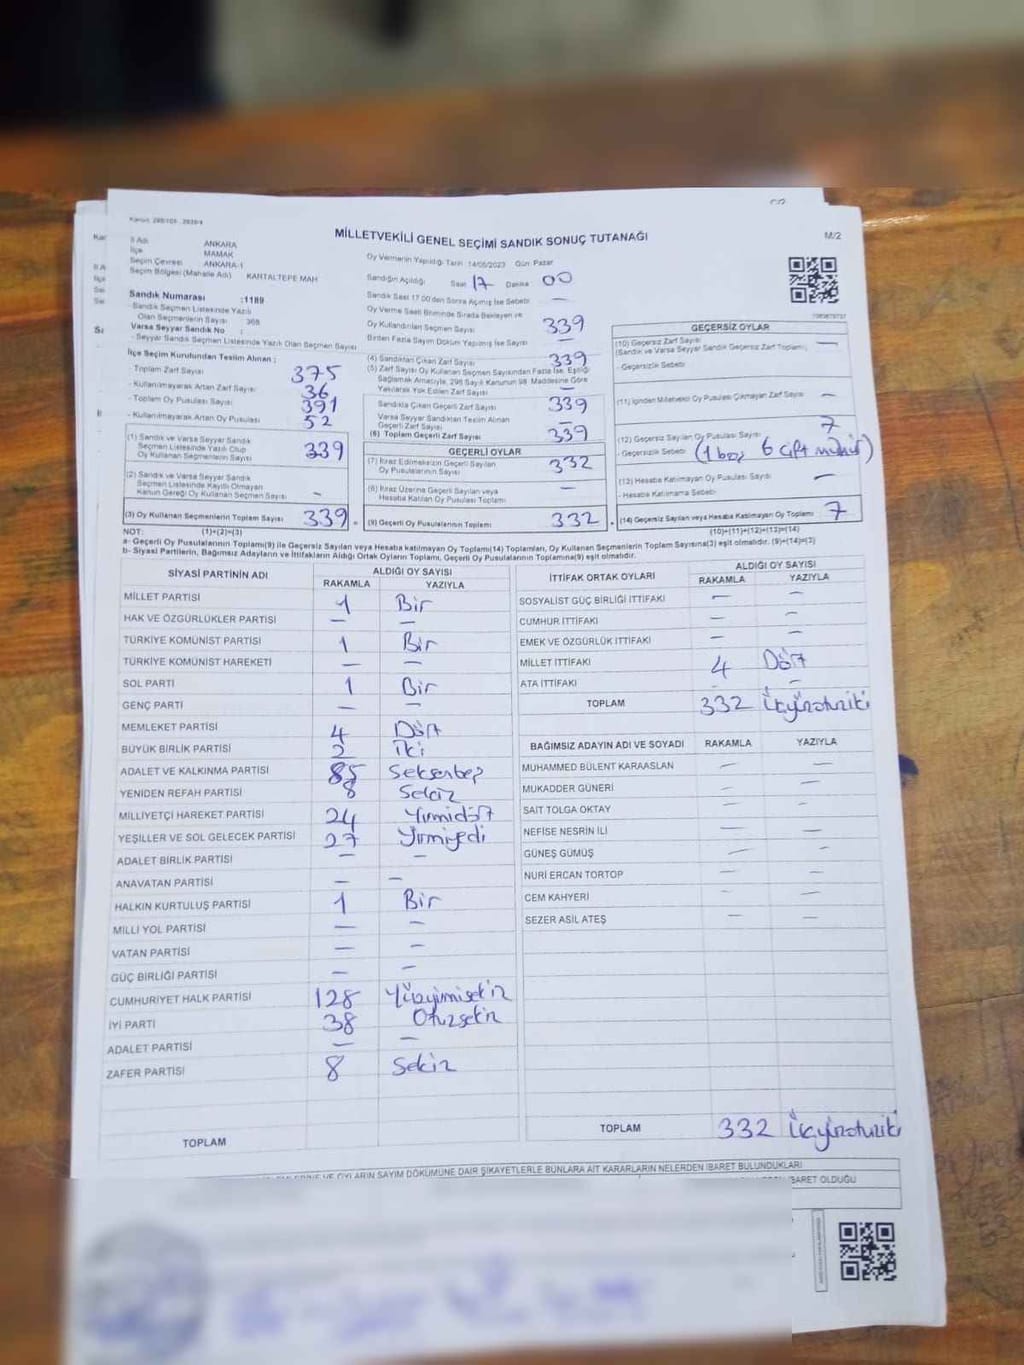 MİLLETVEKİLİ GENEL SEÇİMİ SANDIK SONUÇ TUTANAĞI
M/2
İl Adı ANKARA
İlçe MAMAK
Seçim Çevresi ANKARA-1
Seçim Bölgesi (Mahalle Adı) KARTALTEPE MAH
Sandık Numarası :1189
- Sandık Seçmen Listesinde Yazılı
Olan Seçmenlerin Sayısı 368
Varsa Seyyar Sandık No :
- Seyyar Sandık Seçmen Listesinde Yazılı Olan Seçmen Sayısı
İlçe Seçim Kurulundan Teslim Alınan ;
- Toplam Zarf Sayısı 375
- Kullanılmayarak Artan Zarf Sayısı 36
- Toplam Oy Pusulası Sayısı 391
- Kullanılmayarak Artan Oy Pusulası 52
(1) Sandık ve Varsa Seyyar Sandık
Seçmen Listesinde Yazılı Olup
Oy Kullanan Seçmenlerin Sayısı 339
(2) Sandık ve Varsa Seyyar Sandık
Seçmen Listesinde Kayıtlı Olmayan
Kanun Gereği Oy Kullanan Seçmen Sayısı -
(3) Oy Kullanan Seçmenlerin Toplam Sayısı 339
(1)+(2)=(3)
Oy Vermenin Yapıldığı Tarih 14/05/2023 Gün Pazar
Sandığın Açıldığı Saat 17 Dakika 00
Sandık Saat 17.00'den Sonra Açılmış İse Sebebi -
Oy Verme Saati Bitiminde Sırada Bekleyen ve
Oy Kullandırılan Seçmen Sayısı 339
Birden Fazla Sayım Döküm Yapılmış İse Sayısı -
(4) Sandıktan Çıkan Zarf Sayısı 339
(5) Zarf Sayısı Oy Kullanan Seçmen Sayısından Fazla İse, Eşitliği
Sağlamak Amacıyla, 298 Sayılı Kanunun 98. Maddesine Göre
Yakılarak Yok Edilen Zarf Sayısı -
Sandıkta Çıkan Geçerli Zarf Sayısı 339
Varsa Seyyar Sandıktan Teslim Alınan
Geçerli Zarf Sayısı -
(6) Toplam Geçerli Zarf Sayısı 339
GEÇERLİ OYLAR
(7) İtiraz Edilmeksizin Geçerli Sayılan
Oy Pusulalarının Sayısı 332
(8) İtiraz Üzerine Geçerli Sayılan veya
Hesaba Katılan Oy Pusulası Toplamı -
(9) Geçerli Oy Pusulalarının Toplamı 332
GEÇERSİZ OYLAR
(10) Geçersiz Zarf Sayısı
(Sandık ve Varsa Seyyar Sandık Geçersiz Zarf Toplamı) -
- Geçersizlik Sebebi
(11) İçinden Milletvekili Oy Pusulası Çıkmayan Zarf Sayısı -
(12) Geçersiz Sayılan Oy Pusulası Sayısı 7
- Geçersizlik Sebebi (1 boş 6 çift mühür)
(13) Hesaba Katılmayan Oy Pusulası Sayısı -
- Hesaba Katılmama Sebebi
(14) Geçersiz Sayılan veya Hesaba Katılmayan Oy Toplamı 7
(10)+(11)+(12)+(13)=(14)
NOT:
a- Geçerli Oy Pusulalarının Toplamı(9) ile Geçersiz Sayılan veya Hesaba katılmayan Oy Toplamı(14) Toplamları, Oy Kullanan Seçmenlerin Toplam Sayısına(3) eşit olmalıdır. (9)+(14)=(3)
b- Siyasi Partilerin, Bağımsız Adayların ve İttifakların Aldığı Ortak Oyların Toplamı, Geçerli Oy Pusulalarının Toplamına(9) eşit olmalıdır.
SİYASİ PARTİNİN ADI
ALDIĞI OY SAYISI
RAKAMLA YAZIYLA
MİLLET PARTİSİ 1 Bir
HAK VE ÖZGÜRLÜKLER PARTİSİ - -
TÜRKİYE KOMÜNİST PARTİSİ 1 Bir
TÜRKİYE KOMÜNİST HAREKETİ - -
SOL PARTİ 1 Bir
GENÇ PARTİ - -
MEMLEKET PARTİSİ 4 Dört
BÜYÜK BİRLİK PARTİSİ 2 İki
ADALET VE KALKINMA PARTİSİ 85 Seksenbeş
YENİDEN REFAH PARTİSİ 8 Sekiz
MİLLİYETÇİ HAREKET PARTİSİ 24 Yirmidört
YEŞİLLER VE SOL GELECEK PARTİSİ 27 Yirmiyedi
ADALET BİRLİK PARTİSİ - -
ANAVATAN PARTİSİ - -
HALKIN KURTULUŞ PARTİSİ 1 Bir
MİLLİ YOL PARTİSİ - -
VATAN PARTİSİ - -
GÜÇ BİRLİĞİ PARTİSİ - -
CUMHURİYET HALK PARTİSİ 128 Yüzyirmisekiz
İYİ PARTİ 38 Otuzsekiz
ADALET PARTİSİ - -
ZAFER PARTİSİ 8 Sekiz
TOPLAM
İTTİFAK ORTAK OYLARI
ALDIĞI OY SAYISI
RAKAMLA YAZIYLA
SOSYALİST GÜÇ BİRLİĞİ İTTİFAKI - -
CUMHUR İTTİFAKI - -
EMEK VE ÖZGÜRLÜK İTTİFAKI - -
MİLLET İTTİFAKI 4 Dört
ATA İTTİFAKI - -
TOPLAM 332 Üçyüzotuziki
BAĞIMSIZ ADAYIN ADI VE SOYADI RAKAMLA YAZIYLA
MUHAMMED BÜLENT KARAASLAN - -
MUKADDER GÜNERİ - -
SAİT TOLGA OKTAY - -
NEFİSE NESRİN İLİ - -
GÜNEŞ GÜMÜŞ - -
NURİ ERCAN TORTOP - -
CEM KAHYERİ - -
SEZER ASİL ATEŞ - -
TOPLAM 332 Üçyüzotuziki
OYLARIN SAYIM DÖKÜMÜNE DAİR ŞİKAYETLERLE BUNLARA AİT KARARLARIN NELERDEN İBARET BULUNDUKLARI